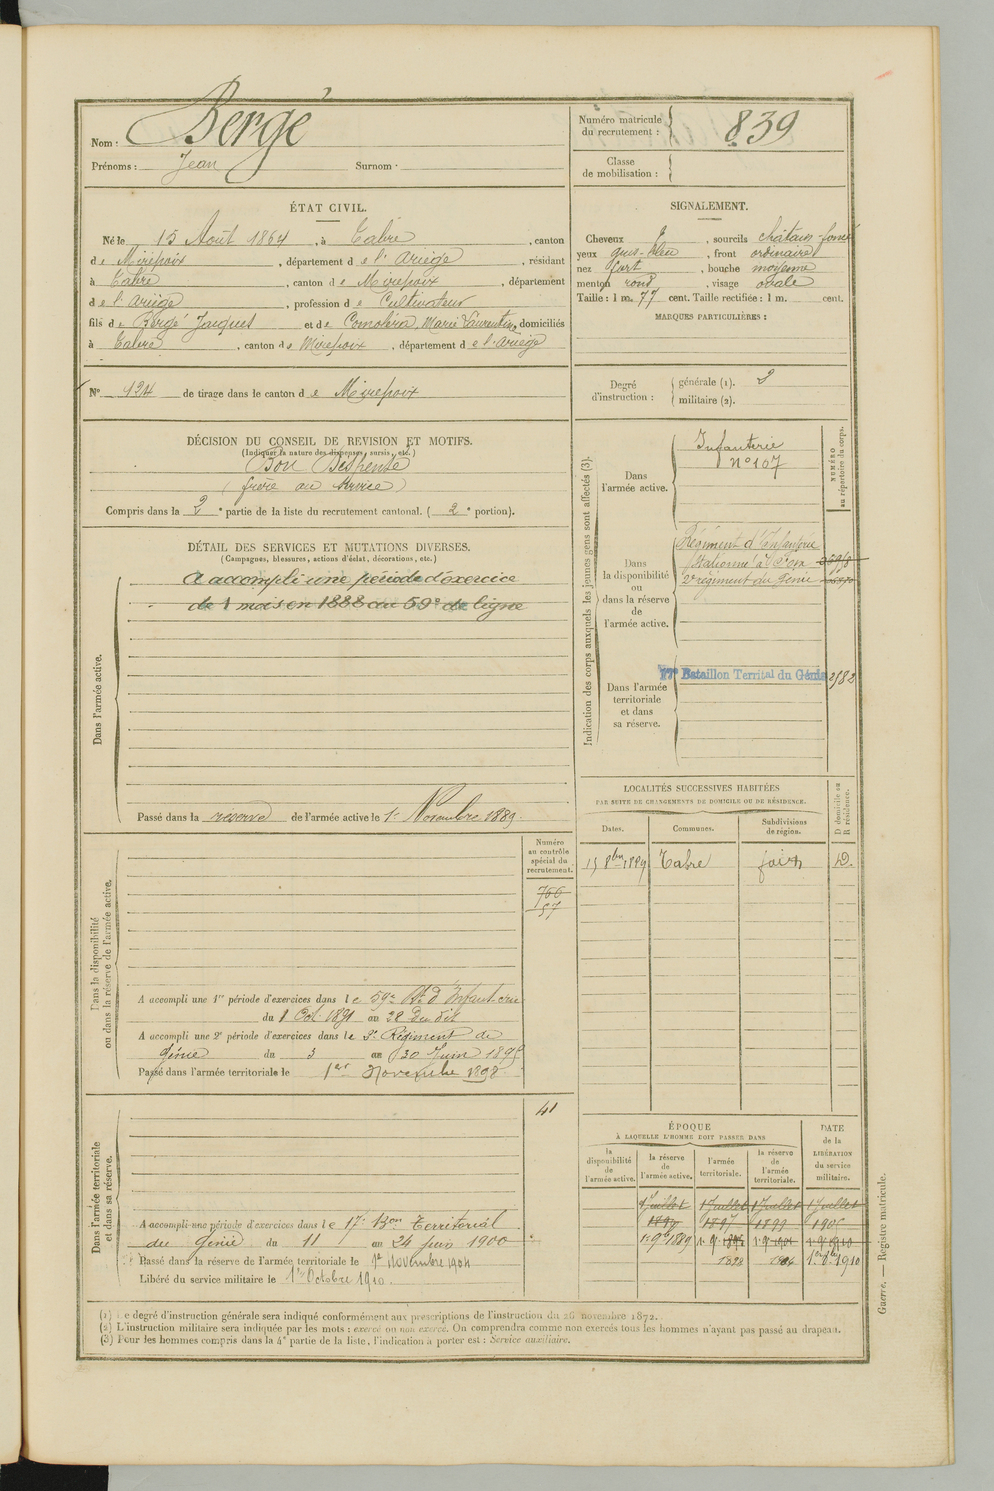 Nom : Bergé
Prénoms : Jean Surnom :
Numéro matricule du recrutement : 839
Classe de mobilisation :
ÉTAT CIVIL.
Né le 15 Août 1864, à Cabre, canton
de Mirepoix, département de l'Ariège, résidant
à Cabre, canton de Mirepoix, département
de l'Ariège, profession de Cultivateur
fils de Bergé Jacques et de Comoléra, Marie Laurentine, domiciliés
à Cabre, canton de Mirepoix, département de l'Ariège
SIGNALEMENT.
Cheveux , sourcils châtain-foncé
yeux gris-bleu, front ordinaire
nez fort, bouche moyenne
menton rond, visage ovale
Taille : 1 m. 77 cent. Taille rectifiée : 1 m. cent.
MARQUES PARTICULIÈRES :
N° 124 de tirage dans le canton de Mirepoix
Degré d'instruction : générale (1). 2
militaire (2).
DÉCISION DU CONSEIL DE REVISION ET MOTIFS.
(Indiquer la nature des dispenses, sursis, etc.)
Bon Dispensé
(frère au service)
Compris dans la 2e partie de la liste du recrutement cantonal. (2e portion).
DÉTAIL DES SERVICES ET MUTATIONS DIVERSES.
(Campagnes, blessures, actions d'éclat, décorations, etc.)
Dans l'armée active.
A accompli une période d'exercice
de 1 mois en 1888 au 59e de ligne
Passé dans la réserve de l'armée active le 1er Novembre 1889.
Indication des corps auxquels les jeunes gens sont affectés (3).
NUMÉRO au répertoire du corps.
Dans l'armée active.
Infanterie
N° 107
Dans la disponibilité ou dans la réserve de l'armée active.
Régiment d'Infanterie
stationné à Foix
2e régiment du Génie
Dans l'armée territoriale et dans sa réserve.
17e Bataillon Territal du Génie 2582
LOCALITÉS SUCCESSIVES HABITÉES
PAR SUITE DE CHANGEMENTS DE DOMICILE OU DE RÉSIDENCE.
Dates. Communes. Subdivisions de région. D domicile ou R résidence.
15 8bre 1889 Cabre foix D.
Dans la disponibilité ou dans la réserve de l'armée active.
Numéro au contrôle spécial du recrutement.
766
57
A accompli une 1re période d'exercices dans le 59e Rt d'Infanterie
du 1 Oct 1891 au 28 Du dit
A accompli une 2e période d'exercices dans le 2e Régiment de
Génie du 3 au 30 Juin 1895
Passé dans l'armée territoriale le 1er Novembre 1898
Dans l'armée territoriale et dans sa réserve.
41
A accompli une période d'exercices dans le 17e Bon Territorial
du Génie du 11 au 24 juin 1900
Passé dans la réserve de l'armée territoriale le 1er Novembre 1904
Libéré du service militaire le 1er Octobre 1910.
ÉPOQUE
À LAQUELLE L'HOMME DOIT PASSER DANS
DATE de la LIBÉRATION du service militaire.
la disponibilité de l'armée active. la réserve de l'armée active. l'armée territoriale. la réserve de l'armée territoriale.
1 Juillet 1 Juillet 1 Juillet 1 Juillet
1889 1897 1899 1905
1er 9bre 1889
1898 1904 1er 8bre 1910
(1) Le degré d'instruction générale sera indiqué conformément aux prescriptions de l'instruction du 26 novembre 1872.
(2) L'instruction militaire sera indiquée par les mots : exercé ou non exercé. On comprendra comme non exercés tous les hommes n'ayant pas passé au drapeau.
(3) Pour les hommes compris dans la 4e partie de la liste, l'indication à porter est : Service auxiliaire.
Guerre. — Registre matricule.